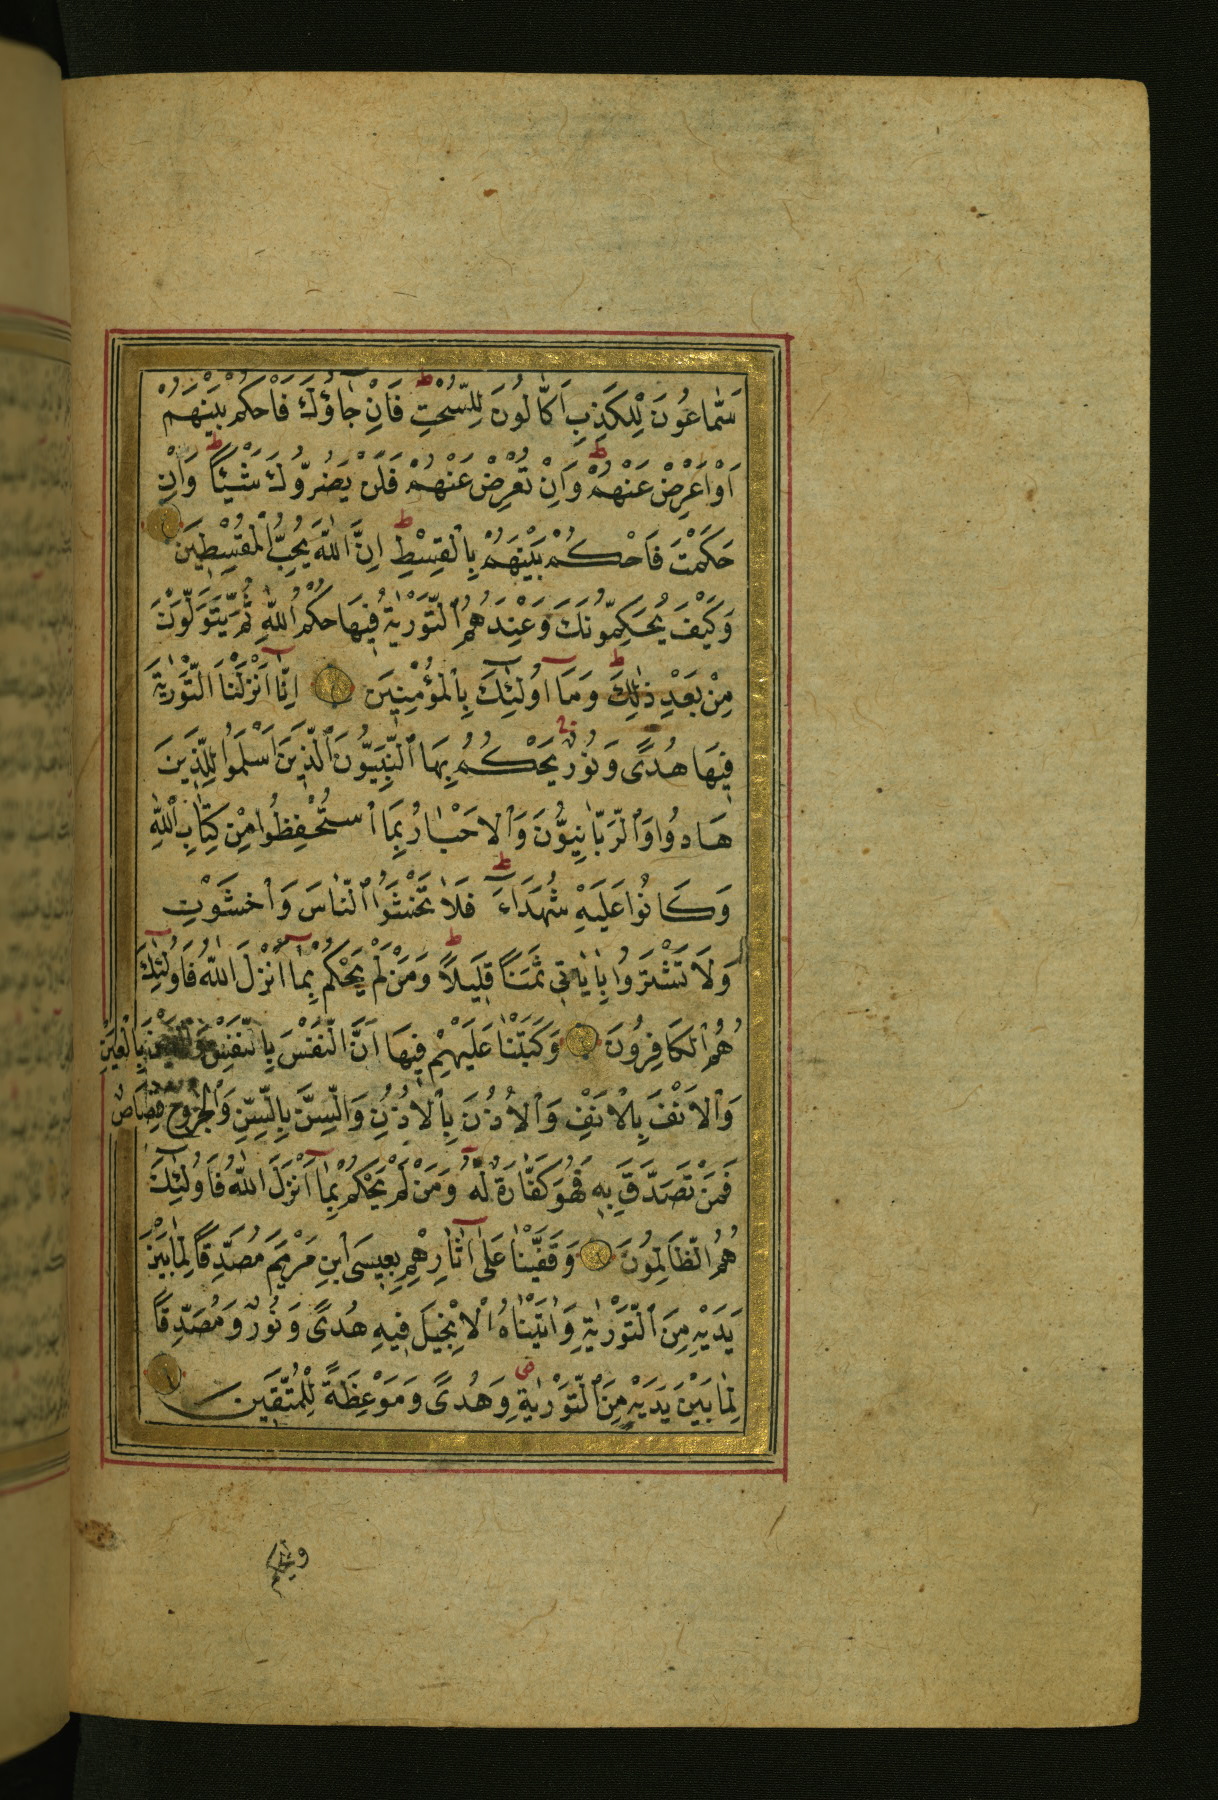 سَمَّاعُونَ لِلْكَذِبِ اَكَّالُونَ لِلسُّحْتِ ط فَاِنْ جَاؤُكَ فَاحْكُمْ بَيْنَهُمْ
اَوْ اَعْرِضْ عَنْهُمْ ط وَاِنْ تُعْرِضْ عَنْهُمْ فَلَنْ يَضُرُّوكَ شَيْئًا ط وَاِنْ
حَكَمْتَ فَاحْكُمْ بَيْنَهُمْ بِالْقِسْطِ ط اِنَّ اللّٰهَ يُحِبُّ الْمُقْسِطِينَ
وَكَيْفَ يُحَكِّمُونَكَ وَعِنْدَهُمُ التَّوْرٰيةُ فِيهَا حُكْمُ اللّٰهِ ثُمَّ يَتَوَلَّوْنَ
مِنْ بَعْدِ ذٰلِكَ ط وَمَا اُولٰئِكَ بِالْمُؤْمِنِينَ اِنَّا اَنْزَلْنَا التَّوْرٰيةَ
فِيهَا هُدًى وَنُورٌ يَحْكُمُ بِهَا النَّبِيُّونَ الَّذِينَ اَسْلَمُوا لِلَّذِينَ
هَادُوا وَالرَّبَّانِيُّونَ وَالْاَحْبَارُ بِمَا اسْتُحْفِظُوا مِنْ كِتَابِ اللّٰهِ
وَكَانُوا عَلَيْهِ شُهَدَاءَ ط فَلَا تَخْشَوُا النَّاسَ وَاخْشَوْنِ
وَلَا تَشْتَرُوا بِاٰيَاتِي ثَمَنًا قَلِيلًا ط وَمَنْ لَمْ يَحْكُمْ بِمَا اَنْزَلَ اللّٰهُ فَاُولٰئِكَ
هُمُ الْكَافِرُونَ وَكَتَبْنَا عَلَيْهِمْ فِيهَا اَنَّ النَّفْسَ بِالنَّفْسِ وَالْعَيْنَ بِالْعَيْنِ
وَالْاَنْفَ بِالْاَنْفِ وَالْاُذُنَ بِالْاُذُنِ وَالسِّنَّ بِالسِّنِّ وَالْجُرُوحَ قِصَاصٌ
فَمَنْ تَصَدَّقَ بِهِ فَهُوَ كَفَّارَةٌ لَهُ وَمَنْ لَمْ يَحْكُمْ بِمَا اَنْزَلَ اللّٰهُ فَاُولٰئِكَ
هُمُ الظَّالِمُونَ وَقَفَّيْنَا عَلٰى اٰثَارِهِمْ بِعِيسَى ابْنِ مَرْيَمَ مُصَدِّقًا لِمَا بَيْنَ
يَدَيْهِ مِنَ التَّوْرٰيةِ وَاٰتَيْنَاهُ الْاِنْجِيلَ فِيهِ هُدًى وَنُورٌ وَمُصَدِّقًا
لِمَا بَيْنَ يَدَيْهِ مِنَ التَّوْرٰيةِ وَهُدًى وَمَوْعِظَةً لِلْمُتَّقِينَ
وليحكم